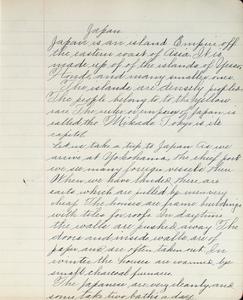 Japan
Japan is an island Empire off
the eastern coast of Asia. It is
made up of of the islands of Yesso,
and many smaller ones.
The islands are densely
The people belong to the yellow
race. The ruler of Japan is
called the Mikado. Tokyo is its
capitol.
Let us take a trip to Japan. As we
arrive at Yokohama, the chief port
we see many foreign vessels there.
When we have landed there are
carts which are pulled by men very
cheap. The houses are frame buildings
with tiles for roofs. In daytime
the walls are pushed away. The
doors and walls are of
paper and are often taken out. In
winter the houses are warmed by
small charcoal furnaces.
The Japanese are very cleanly and
some take two baths a day.